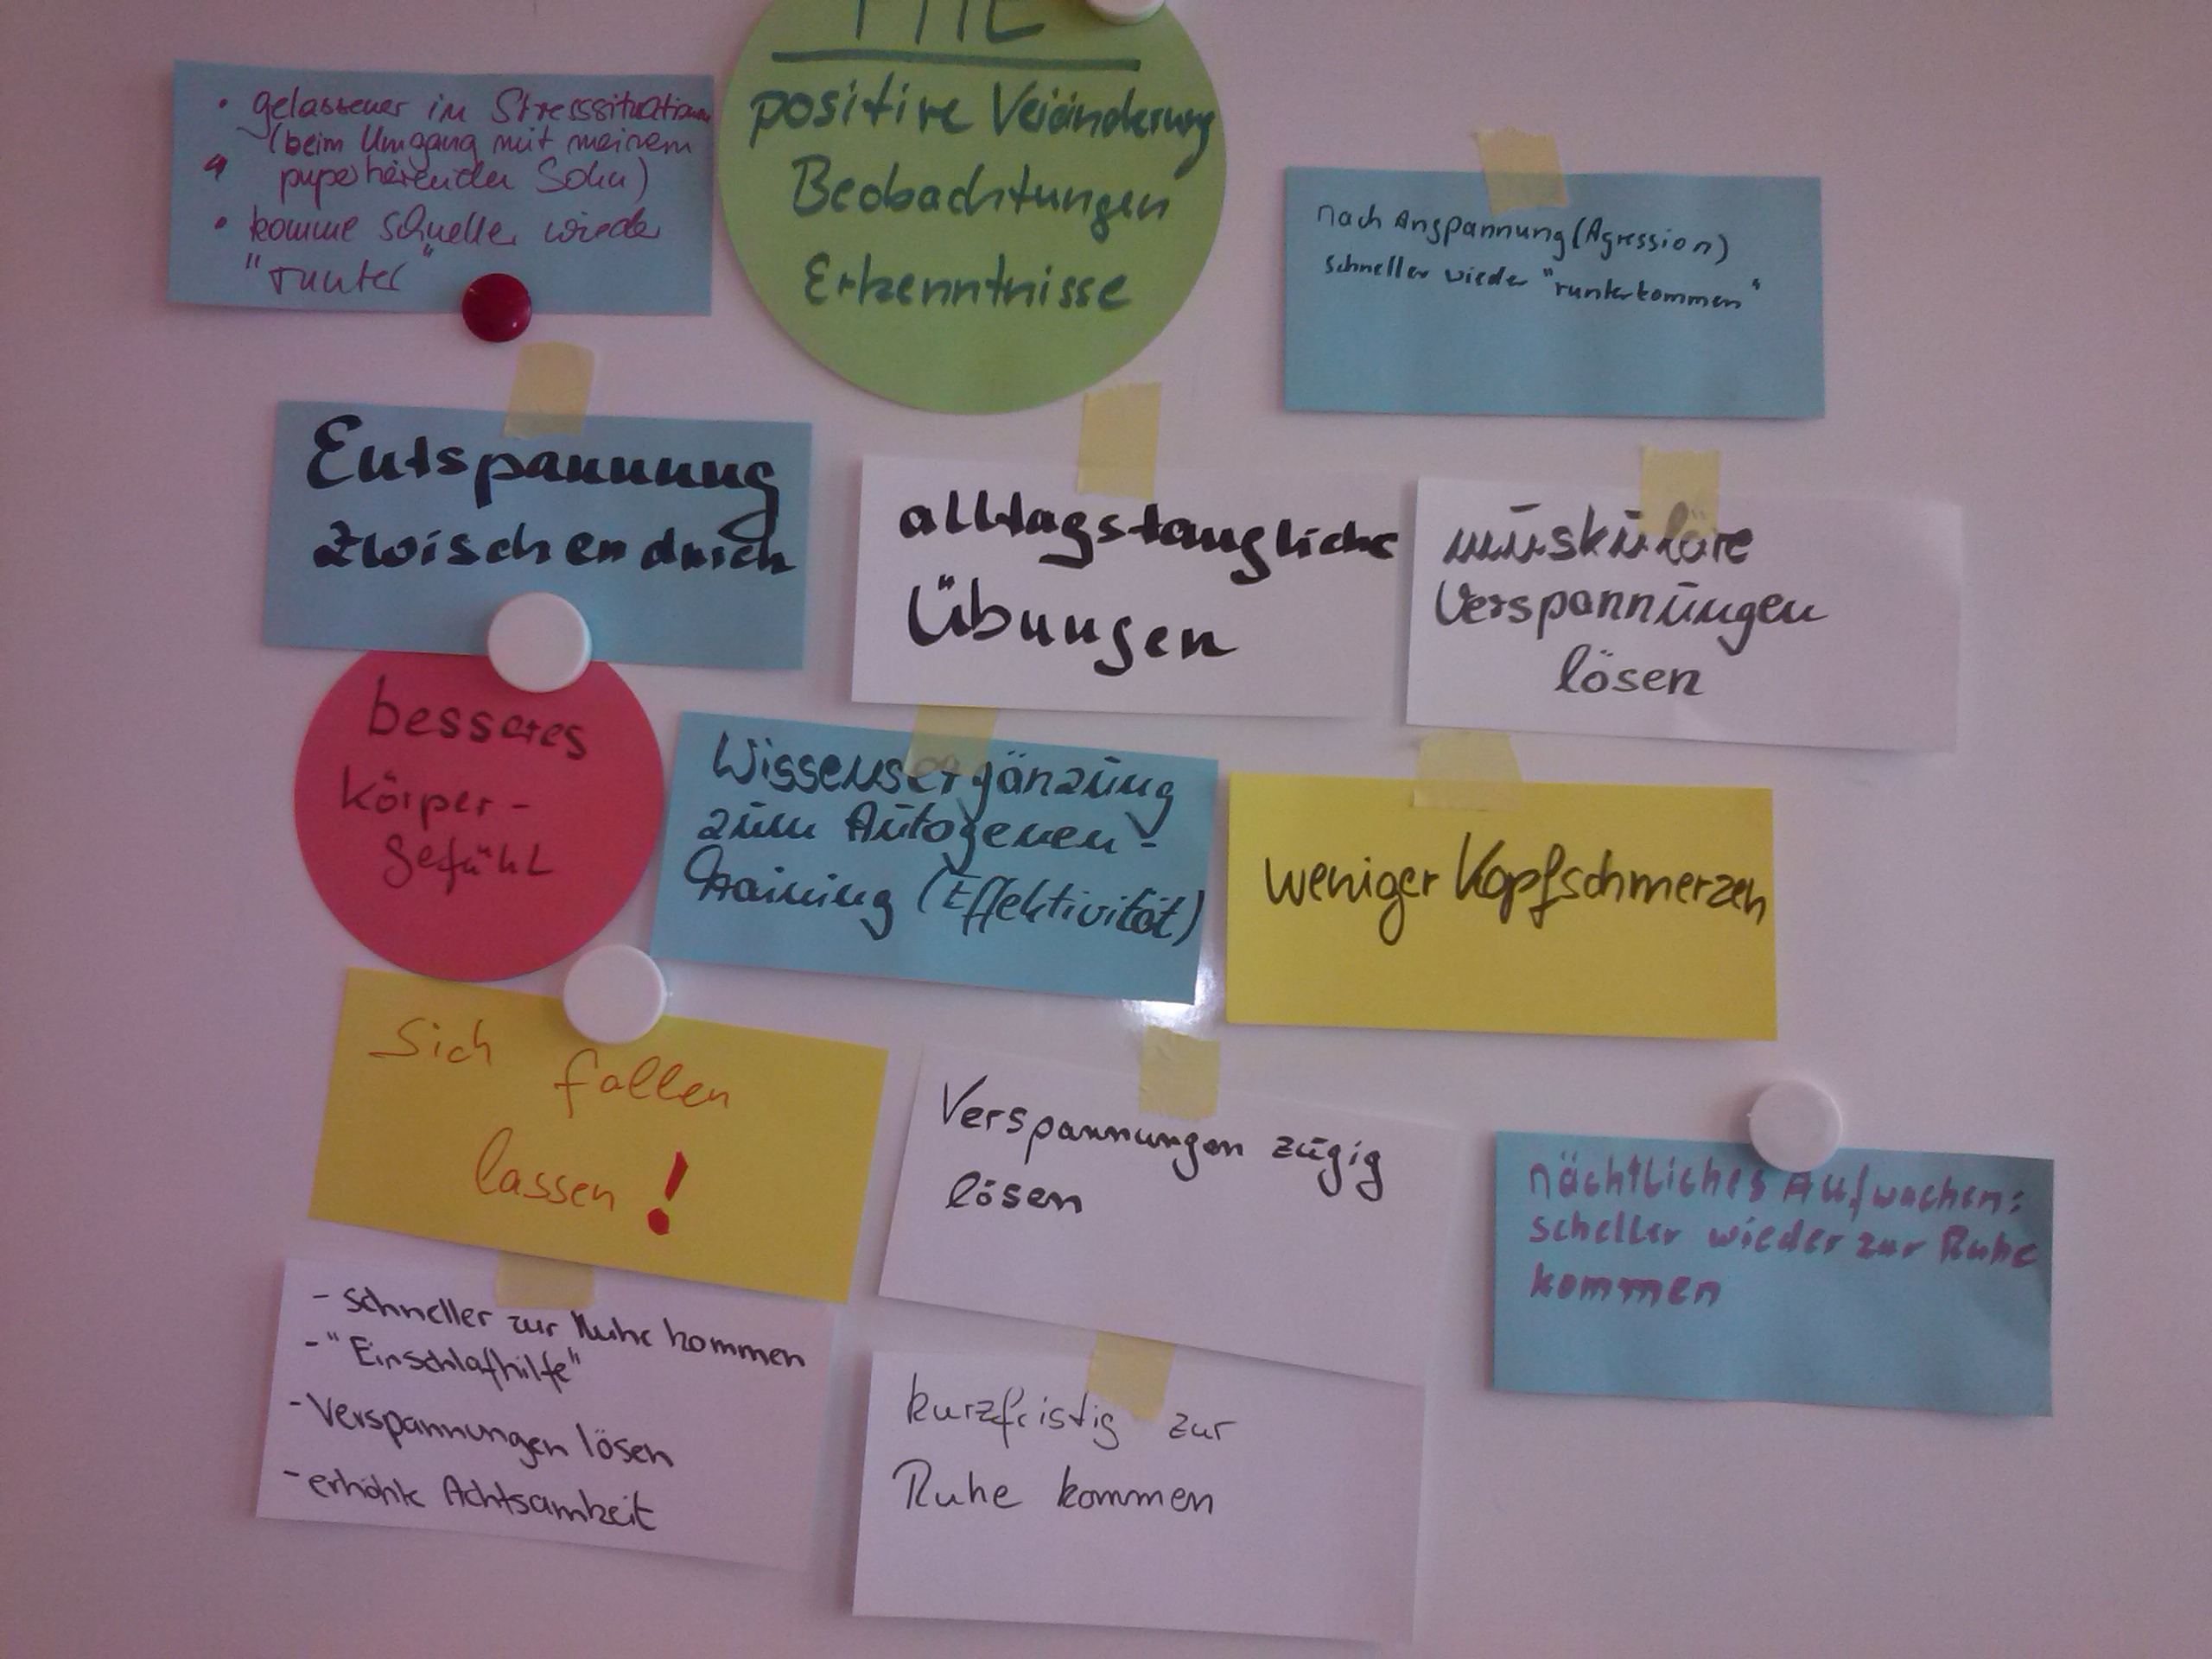 positive Veränderung
Beobachtungen
Erkenntnisse
• gelassener in Stresssituationen
(beim Umgang mit meinem
pupertierenden Sohn)
• komme schneller wieder
"runter"
nach Anspannung (Agression)
schneller wieder "runterkommen"
Entspannung
zwischendurch
alltagstaugliche
Übungen
muskuläre
Verspannungen
lösen
besseres
Körper-
gefühl
Wissensergänzung
zum Autogenen-
Training (Effektivität)
weniger Kopfschmerzen
Sich fallen
lassen!
Verspannungen zügig
lösen
nächtliches Aufwachen:
scheller wieder zur Ruhe
kommen
- schneller zur Ruhe kommen
- "Einschlafhilfe"
- Verspannungen lösen
- erhöhte Achtsamkeit
kurzfristig zur
Ruhe kommen